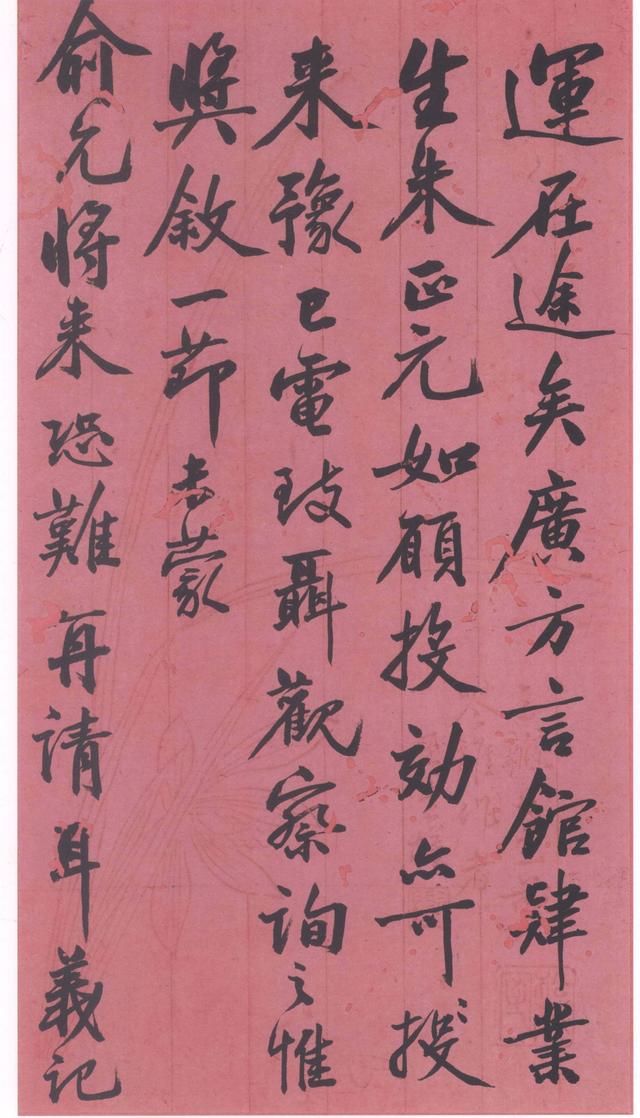 運在途矣廣方言館肄業
生朱正元如願投効亦可投
来豫已電致聶觀察詢之惟
獎敘一節未蒙
俞允將来恐難再請耳義記